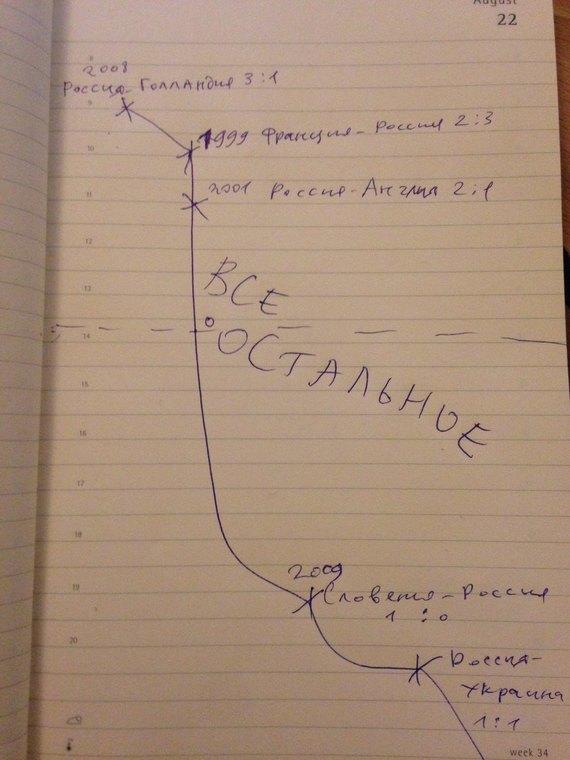 August
22
8
2008
Россия-Голландия 3:1
9
1999 Франция-Россия 2:3
10
2001 Россия-Англия 2:1
11
12
13
ВСЕ
0
14
ОСТАЛЬНОЕ
15
16
17
18
2009
19
Словения-Россия
1:0
20
Россия-
Украина
1:1
week 34